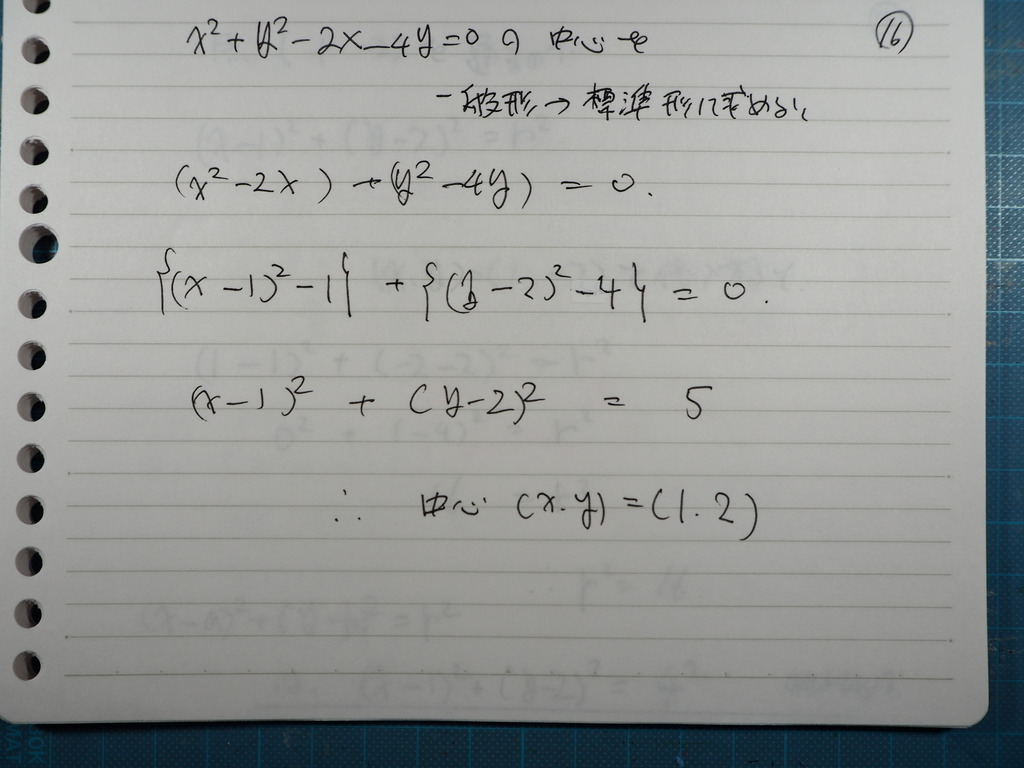 x²+y²-2x-4y=0 の 中心を
⑯
一般形→標準形にて求めるに
(x²-2x)+(y²-4y)=0.
{(x-1)²-1}+{(y-2)²-4}=0.
(x-1)²+(y-2)²=5
∴ 中心 (x.y)=(1.2)